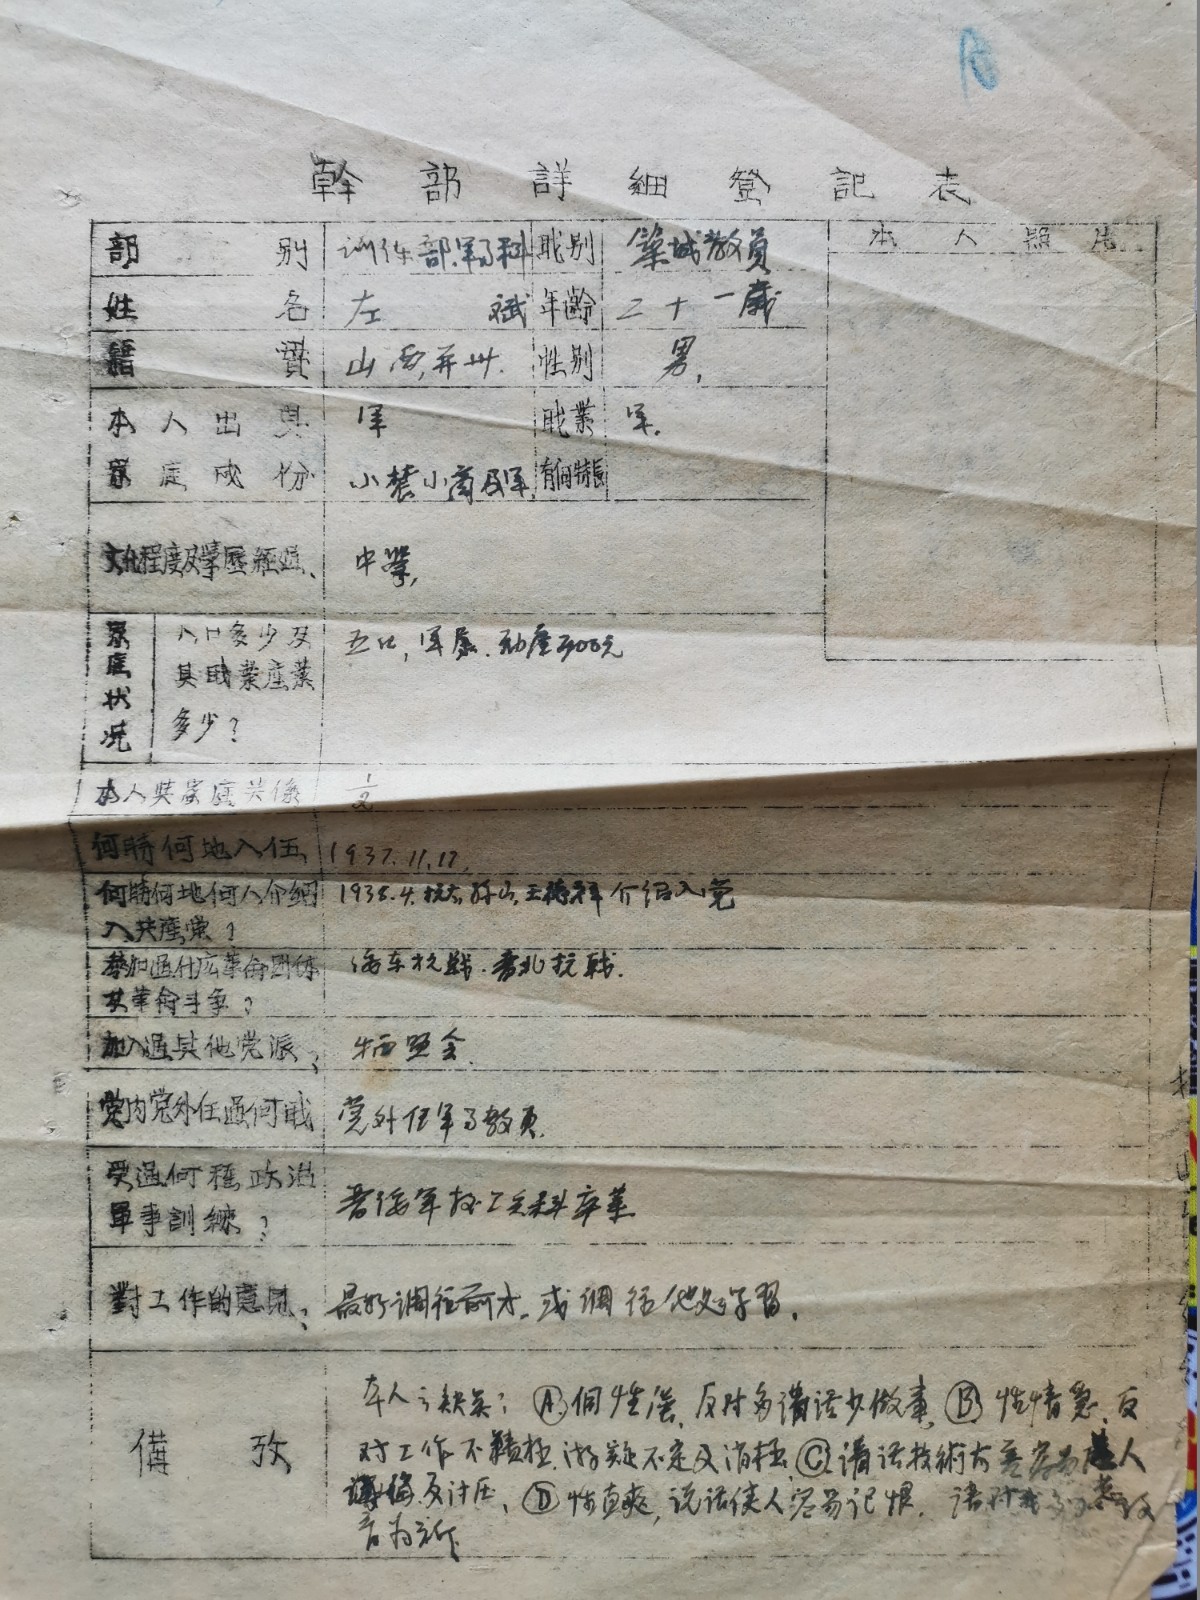 幹部詳細登記表
部別 訓练部軍事科 職別 築城教員 本人照片
姓名 左斌 年齡 二十一歲
籍貫 山西 性別 男,
本人出身 军 職業 军.
家庭成份 小農小商及军, 有何特長
文化程度及學歷經過、 中學,
家庭状况 人口多少及其職業產業多少? 五口,军属.动產300元
本人與家庭关係
何時何地入伍, 1937.11.17.
何時何地何人介紹入共產党? 1938.4.抗大, 介绍入党
参加过什広革命團体及革命斗争? 绥东抗戰.晋北抗戰.
加入過其他党派? 牺盟会.
党内党外任過何职 党外任军事教員.
受過何種政治軍事訓練? 晋绥军校工兵科卒業
對工作的意見? 最好调往前方.或调往他处学習.
備攷
本人之缺点: Ⓐ個性强,反对多講话少做事, Ⓑ性情急,反
对工作不積極,游疑不定及消極,Ⓒ講话技術 容易 人
及计压, Ⓓ性直爽,说话使人容易记恨. 诸